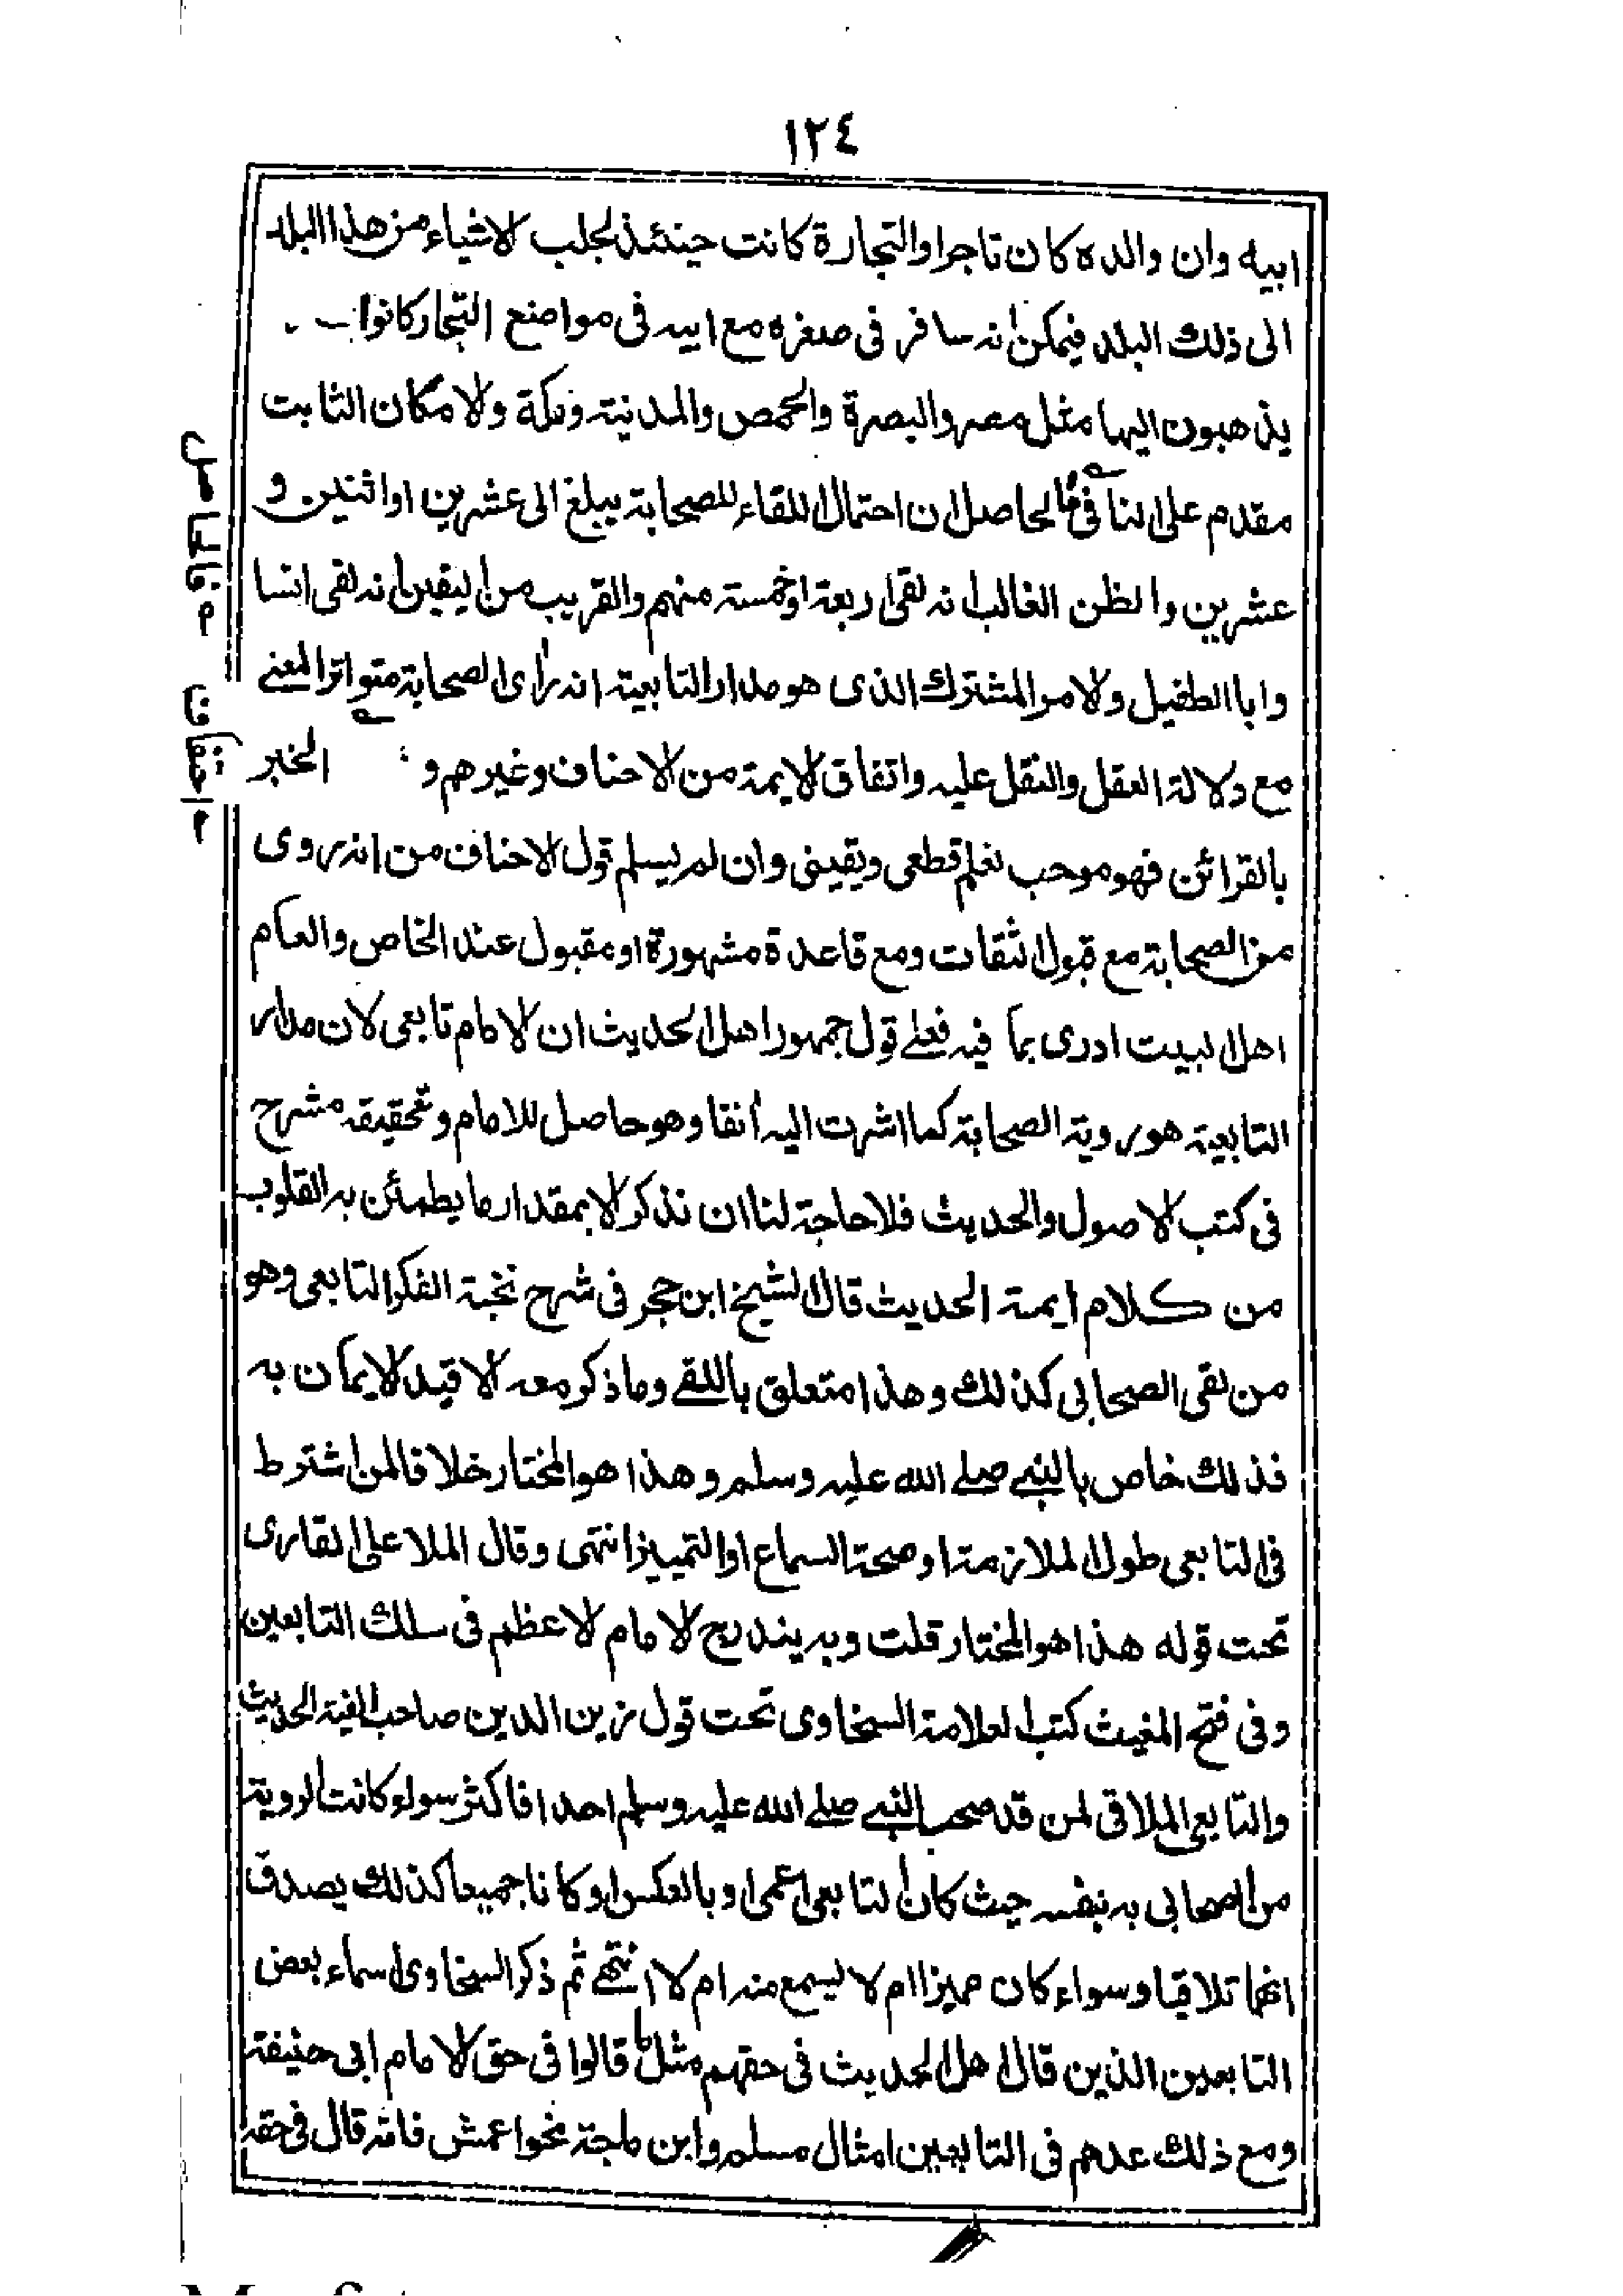 ١٢٤
ابيه وان والده كان تاجرا والتجارة كانت حينئذ لجلب الاشياء من هذا البلد
الى ذلك البلد فيمكن انه سافر فى صغره مع ابيه فى مواضع التجار كانوا
يذهبون اليها مثل مصر والبصرة والحمص والمدينة ومكة ولامكان الثابت
مقدم على النافى فالحاصل ان احتمال اللقاء للصحابة يبلغ الى عشرين او اثنين و
عشرين والظن الغالب انه لقى اربعة او خمسة منهم والقريب من اليقين انه لقى انسا
وابا الطفيل ولامر المشترك الذى هو مدار التابعية انه رأى الصحابة متواتر المعنے
مع دلالة العقل والنقل عليه واتفاق الايمة من الاحناف وغيرهم و الخبر
بالقرائن فهو موجب لعلم قطعى ويقينى وان لم يسلم قول الاحناف من انه روى
من الصحابة مع قبول الثقات ومع قاعدة مشهورة او مقبول عند الخاص والعام
اهل البيت ادرى بما فيه فعلے قول جمهور اهل الحديث ان الامام تابعى لان مدار
التابعية هو روية الصحابة كما اشرت اليه أنفا وهو حاصل للامام وتحقيقه مشرح
فى كتب الاصول والحديث فلا حاجة لنا ان نذكر الا بمقدار ما يطمئن به القلوب
من كلام ايمة الحديث قال الشيخ ابن حجر فى شرح نخبة الفكر التابعى وهو
من لقى الصحابى كذلك وهذا متعلق باللقے وما ذكر معه الا قيد الايمان به
فذلك خاص بالنبے صلے الله عليه وسلم وهذا هو المختار خلافا لمن اشترط
فى التابعى طول الملازمة او صحة السماع او التمييز انتهى وقال الملا على القارى
تحت قوله هذا هو المختار قلت وبه يندرج الامام الاعظم فى سلك التابعين
وفى فتح المغيث كتب العلامة السخاوى تحت قول زين الدين صاحب الفية الحديث
والتابعى الملاقى لمن قد صحب النبے صلے الله عليه وسلم احدا فاكثر سواء كانت الروية
من الصحابى به نفسه حيث كان التابعى اعمى او بالعكس او كانا جميعا كذلك يصدق
انهما تلاقيا وسواء كان مميزا ام لا يسمع منه ام لا انتهے ثم ذكر السخاوى اسماء بعض
التابعين الذين قال اهل الحديث فى حقهم مثل ما قالوا فى حق الامام ابى حنيفة
ومع ذلك عدهم فى التابعين امثال مسلم وابن ماجة نحو اعمش فانه قال فى حقه
فالحاصل
احتفاف